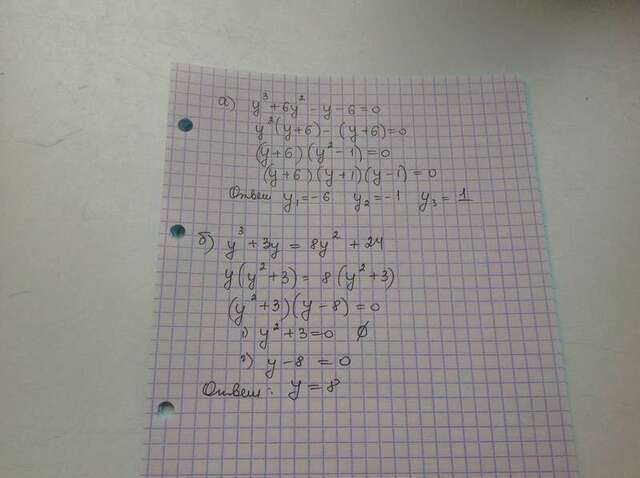 а) y³ + 6y² - y - 6 = 0
y²(y+6) - (y+6) = 0
(y+6)(y² - 1) = 0
(y+6)(y+1)(y-1) = 0
Ответ y₁ = -6 y₂ = -1 y₃ = 1
б) y³ + 3y = 8y² + 24
y(y² + 3) = 8(y² + 3)
(y² + 3)(y - 8) = 0
1) y² + 3 = 0 ∅
2) y - 8 = 0
Ответ: y = 8